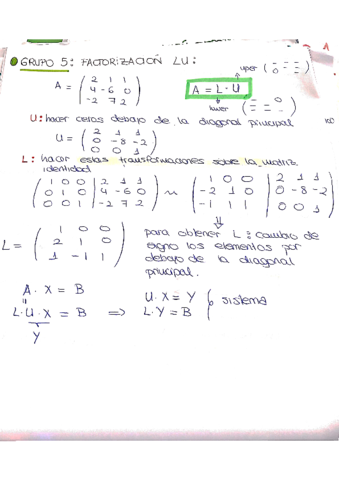 GRUPO 5: FACTORIZACIÓN LU:
upper ( 0 = = )
A = ( 2 1 1 / 4 -6 0 / -2 7 2 )
A = L · U
lower
U: hacer ceros debajo de la diagonal principal
U = ( 2 1 1 / 0 -8 -2 / 0 0 1 )
L: hacer estas transformaciones sobre la matriz
identidad
( 1 0 0 | 2 1 1 / 0 1 0 | 4 -6 0 / 0 0 1 | -2 7 2 ) ~ ( 1 0 0 | 2 1 1 / -2 1 0 | 0 -8 -2 / -1 1 1 | 0 0 1 )
L = ( 1 0 0 / 2 1 0 / 1 -1 1 )
para obtener L: cambio de
signo los elementos por
debajo de la diagonal
principal.
A · X = B
L · U · X = B ⇒
Y
U · X = Y
L · Y = B
sistema